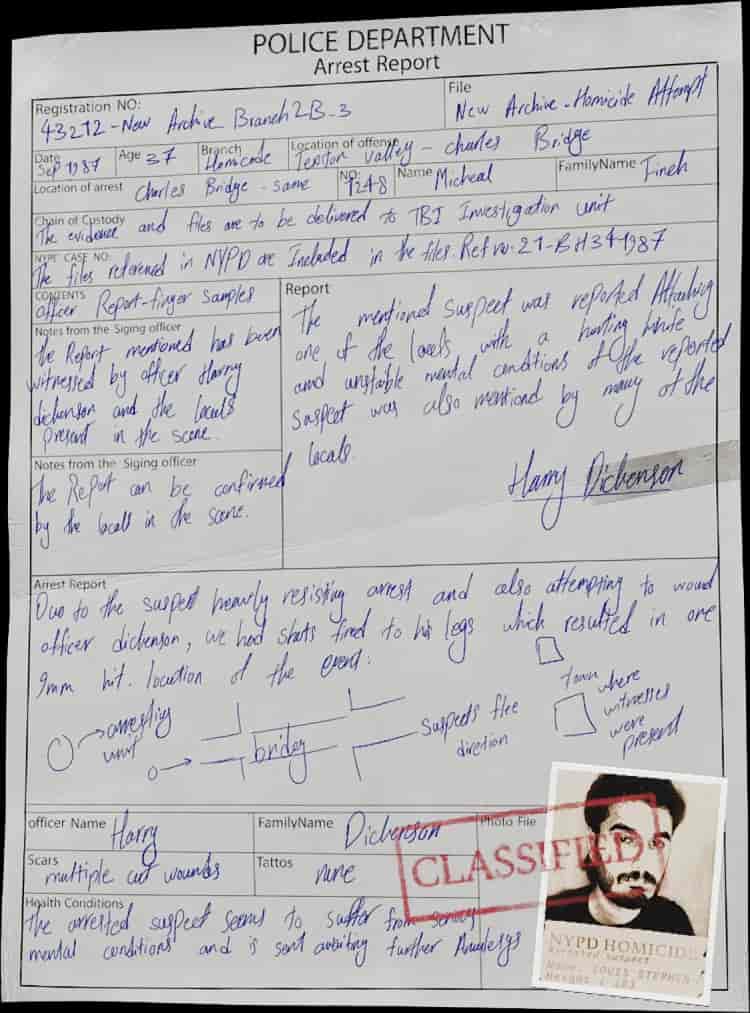 POLICE DEPARTMENT
Arrest Report
Registration NO:
43212 - New Archive Branch 2B-3
File
New Archive - Homicide Attempt
Date
Sep 1987
Age 37
Branch
Homicode
Location of offense
Valley - charles Bridge
Location of arrest Charles Bridge - same
NO:
1248
Name Micheal
FamilyName Fineh
Chain of Custody
The evidence and files are to be delivered to TBI Investigation unit
NYPC CASE NO:
The files referenced in NYPD are Included in the files. Ref no. 21-BH34-1987
CONTENTS
officer Report - finger samples
Notes from the Siging officer
the Report mentioned has been
witnessed by officer Harry
dickenson and the locals
present in the scene.
Report:
The mentioned Suspect was reported Attacking
one of the locals with a hunting knife
and unstable mental conditions of the reported
suspect was also mentiond by many of the
locals.
Harry Dickenson
Notes from the Siging officer
the Report can be confirmed
by the locals in the scene.
Arrest Report
Due to the suspect heavily resisting arrest and also attempting to wound
officer dickenson, we had shots fired to his legs which resulted in one
9mm hit. location of the event.
arresting
unit
bridge
Suspects flee
direction
town where
witnesses
were
present
officer Name Harry
FamilyName Dickenson
Photo File
Scars
multiple cut wounds
Tattos
none
CLASSIFIED
Health Conditions
the arrested suspect seems to suffer from
mental conditions and is sent awaiting further
NYPD HOMICIDE
Arrested Suspect
Name: LOUIS STEPHEN
Height : 183